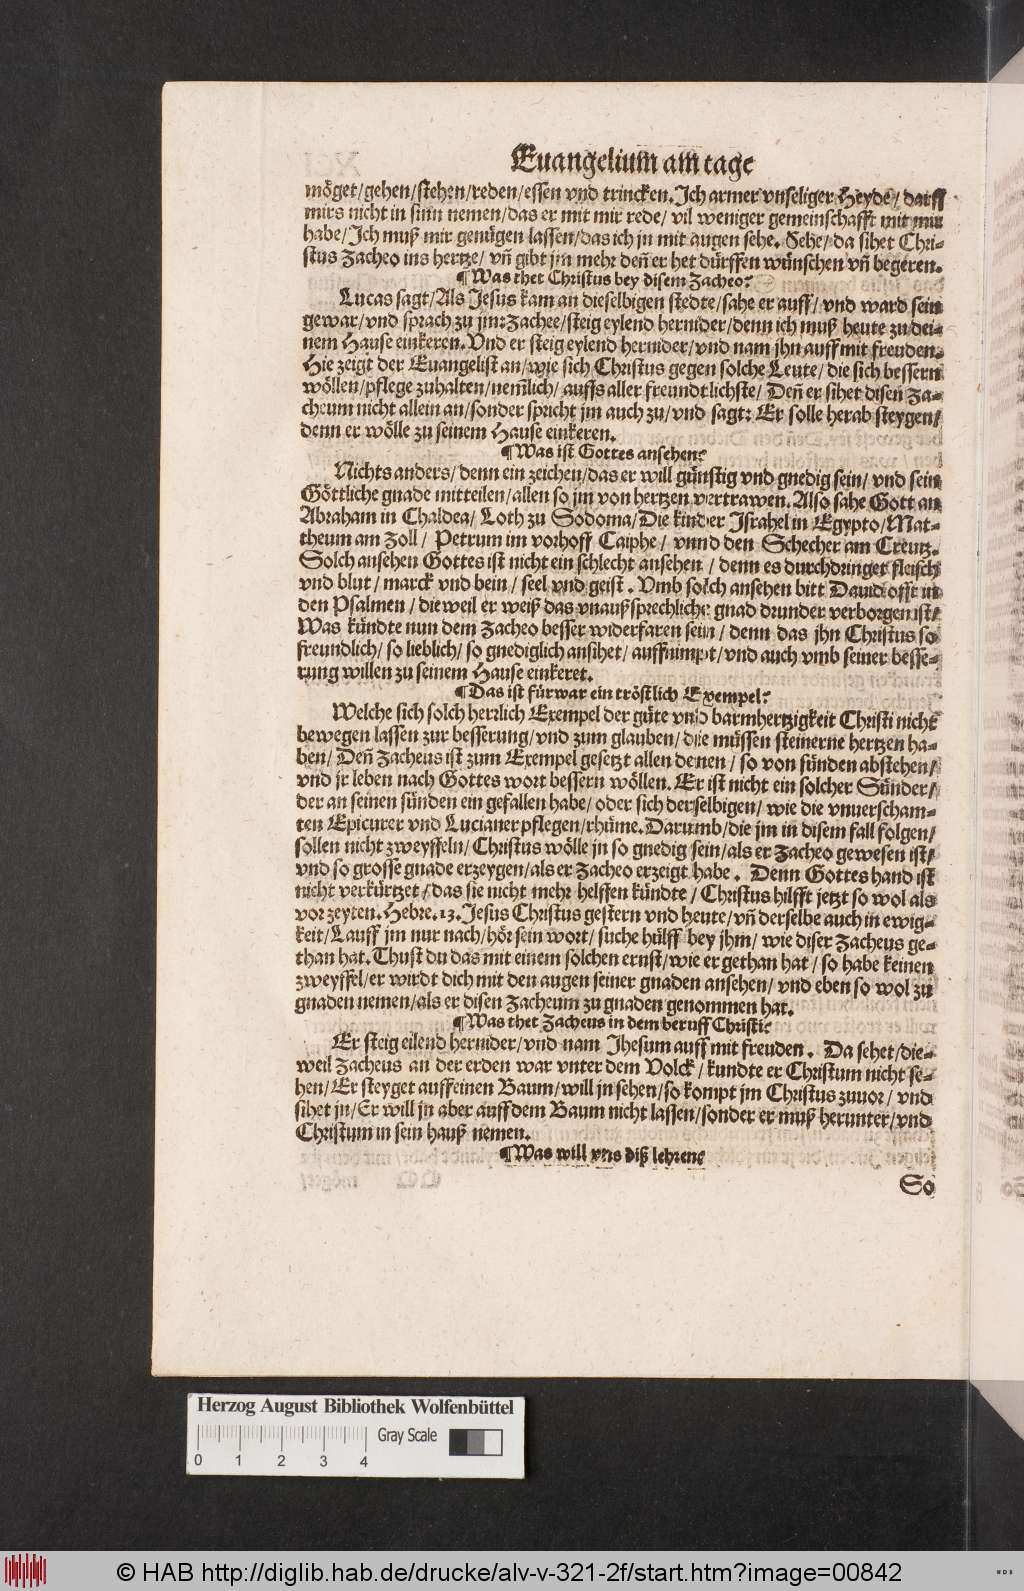 Euangelium am tage
möget/gehen/stehen/reden/essen vnd trincken. Ich armer vnseliger Heyde/ darff
mirs nicht in sinn nemen/das er mit mir rede/ vil weniger gemeinschafft mit mir
habe/Ich muß mir genügen lassen/das ich jn mit augen sehe. Sehe/da sihet Chri-
stus Zacheo ins hertze/ vñ gibt jm mehr deñ er het dürffen wünschen vñ begeren.
¶Was thet Christus bey disem Zacheo?
Lucas sagt/Als Jesus kam an dieselbigen stedte/sahe er auff/ vnd ward sein
gewar/vnd sprach zu jm: Zachee/steig eylend hernider/denn ich muß heute zu dei-
nem Hause einkeren. Vnd er steig eylend hernider/vnd nam jhn auff mit freuden.
Hie zeigt der Euangelist an/wie sich Christus gegen solche Leute/ die sich bessern
wöllen/pflege zuhalten/nem̃lich/ auffs aller freundtlichste/ Deñ er sihet disen Za-
cheum nicht allein an/sonder spricht jm auch zu/vnd sagt: Er solle herab steygen/
denn er wölle zu seinem Hause einkeren.
¶Was ist Gottes ansehen?
Nichts anders/ denn ein zeichen/das er will günstig vnd gnedig sein/ vnd sein
Göttliche gnade mitteilen/allen so jm von hertzen vertrawen. Also sahe Gott an
Abraham in Chaldea/ Loth zu Sodoma/Die kinder Israhel in Egypto/Mat-
theum am Zoll/ Petrum im vorhoff Caiphe/ vnnd den Schecher am Creutz.
Solch ansehen Gottes ist nicht ein schlecht ansehen/ denn es durchdringet fleisch
vnd blut/ marck vnd bein/ seel vnd geist. Vmb solch ansehen bitt Dauid offt in
den Psalmen/ die weil er weiß das vnaußsprechliche gnad drunder verborgen ist/
Was kündte nun dem Zacheo besser widerfaren sein/ denn das jhn Christus so
freundlich/ so lieblich/ so gnediglich ansihet/ auffnimpt/vnd auch vmb seiner besse-
rung willen zu seinem Hause einkeret.
¶Das ist fürwar ein tröstlich Exempel?
Welche sich solch herrlich Exempel der güte vnd barmhertzigkeit Christi nicht
bewegen lassen zur besserung/vnd zum glauben/ die müssen steinerne hertzen ha-
ben/ Deñ Zacheus ist zum Exempel gesetzt allen denen/ so von sünden abstehen/
vnd jr leben nach Gottes wort bessern wöllen. Er ist nicht ein solcher Sünder/
der an seinen sünden ein gefallen habe/ oder sich derselbigen/ wie die vnuerscham-
ten Epicurer vnd Lucianer pflegen/rhüme. Darumb/die jm in disem fall folgen/
sollen nicht zweyffeln/ Christus wölle jn so gnedig sein/als er Zacheo gewesen ist/
vnd so grosse gnade erzeygen/als er Zacheo erzeigt habe. Denn Gottes hand ist
nicht verkürtzet/das sie nicht mehr helffen kündte/ Christus hilfft jetzt so wol als
vor zeyten. Hebre. 13. Jesus Christus gestern vnd heute/vñ derselbe auch in ewig-
keit/Lauff jm nur nach/hör sein wort/ suche hülff bey jhm/ wie diser Zacheus ge-
than hat. Thust du das mit einem solchen ernst/wie er gethan hat/ so habe keinen
zweyffel/er wirdt dich mit den augen seiner gnaden ansehen/ vnd eben so wol zu
gnaden nemen/als er disen Zacheum zu gnaden genommen hat.
¶Was thet Zacheus in dem beruff Christi?
Er steig eilend hernider/vnd nam Jhesum auff mit freuden. Da sehet/die-
weil Zacheus an der erden war vnter dem Volck/ kundte er Christum nicht se-
hen/Er steyget auff einen Baum/will jn sehen/so kompt jm Christus zuuor/ vnd
sihet jn/Er will jn aber auff dem Baum nicht lassen/sonder er muß herunter/vnd
Christum in sein hauß nemen.
¶Was will vns diß lehren?
So
Herzog August Bibliothek Wolfenbüttel
Gray Scale
0 1 2 3 4
© HAB http://diglib.hab.de/drucke/alv-v-321-2f/start.htm?image=00842